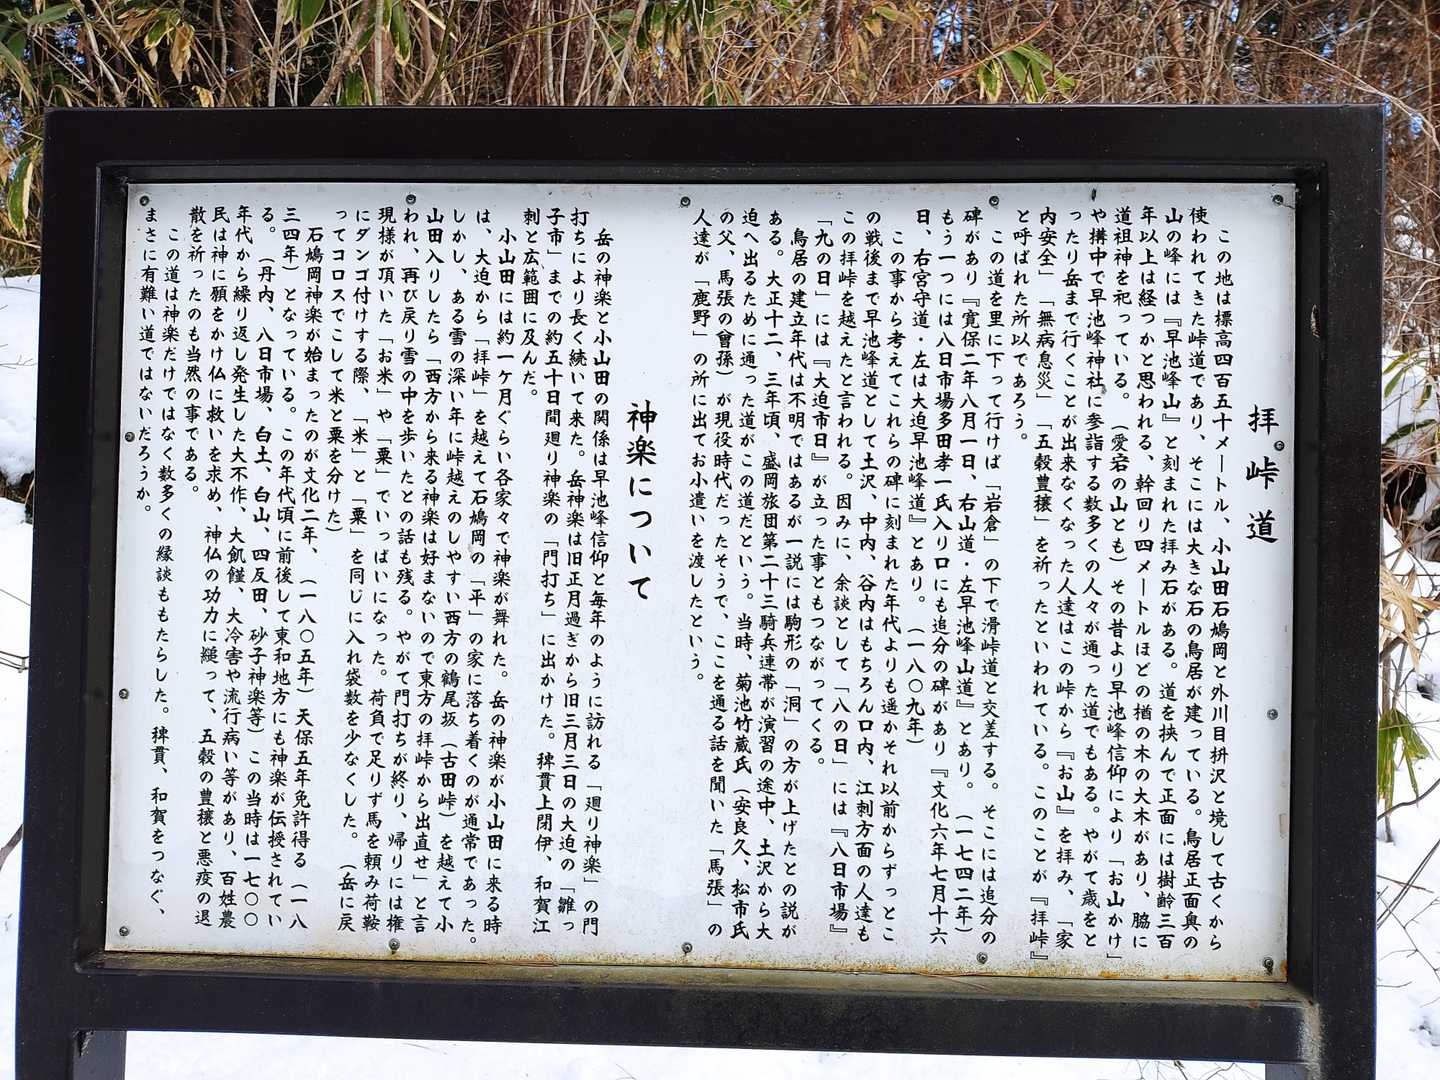 拝峠道
この地は標高四百五十メートル、小山田石鳩岡と外川目拼沢と境して古くから
使われてきた峠道であり、そこには大きな石の鳥居が建っている。鳥居正面奥の
山の峰には『早池峰山』と刻まれた拝み石がある。道を挟んで正面には樹齢三百
年以上は経つかと思われる、幹回り四メートルほどの楢の木の大木があり、脇に
道祖神を祀っている。（愛宕の山とも）その昔より早池峰信仰により「お山かけ」
や搆中で早池峰神社に参詣する数多くの人々が通った道でもある。やがて歳をと
ったり岳まで行くことが出来なくなった人達はこの峠から『お山』を拝み、「家
内安全」「無病息災」「五穀豊穣」を祈ったといわれている。このことが『拝峠』
と呼ばれた所以であろう。
この道を里に下って行けば「岩倉」の下で滑峠道と交差する。そこには追分の
碑があり『寛保二年八月一日、右山道・左早池峰山道』とあり。（一七四二年）
もう一つには八日市場多田孝一氏入り口にも追分の碑があり『文化六年七月十六
日、右宮守道・左は大迫早池峰道』とあり。（一八〇九年）
この事から考えてこれらの碑に刻まれた年代よりも遥かそれ以前からずっとこ
の戦後まで早池峰道として土沢、中内、谷内はもちろん口内、江刺方面の人達も
この拝峠を越えたと言われる。因みに、余談として「八の日」には『八日市場』
「九の日」には『大迫市日』が立った事ともつながってくる。
鳥居の建立年代は不明ではあるが一説には駒形の「洞」の方が上げたとの説が
ある。大正十二、三年頃、盛岡旅団第二十三騎兵連帯が演習の途中、土沢から大
迫へ出るために通った道がこの道だという。当時、菊池竹蔵氏（安良久、松市氏
の父、馬張の曾孫）が現役時代だったそうで、ここを通る話を聞いた「馬張」の
人達が「鹿野」の所に出てお小遣いを渡したという。
神楽について
岳の神楽と小山田の関係は早池峰信仰と毎年のように訪れる「廻り神楽」の門
打ちにより長く続いて来た。岳神楽は旧正月過ぎから旧三月三日の大迫の「雛っ
子市」までの約五十日間廻り神楽の「門打ち」に出かけた。稗貫上閉伊、和賀江
刺と広範囲に及んだ。
小山田には約一ケ月ぐらい各家々で神楽が舞れた。岳の神楽が小山田に来る時
は、大迫から「拝峠」を越えて石鳩岡の「平」の家に落ち着くのが通常であった。
しかし、ある雪の深い年に峠越えのしやすい西方の鶴尾坂（古田峠）を越えて小
山田入りしたら「西方から来る神楽は好まないので東方の拝峠から出直せ」と言
われ、再び戻り雪の中を歩いたとの話も残る。やがて門打ちが終り、帰りには権
現様が頂いた「お米」や「粟」でいっぱいになった。荷負で足りず馬を頼み荷鞍
にダンゴ付けする際、「米」と「粟」を同じに入れ袋数を少なくした。（岳に戻
ってコロスでこして米と粟を分けた）
石鳩岡神楽が始まったのが文化二年、（一八〇五年）天保五年免許得る（一八
三四年）となっている。この年代頃に前後して東和地方にも神楽が伝授されてい
る。（丹内、八日市場、白土、白山、四反田、砂子神楽等）この当時は一七〇〇
年代から繰り返し発生した大不作、大飢饉、大冷害や流行病い等があり、百姓農
民は神に願をかけ仏に救いを求め、神仏の功力に縋って、五穀の豊穣と悪疫の退
散を祈ったのも当然の事である。
この道は神楽だけではなく数多くの縁談ももたらした。稗貫、和賀をつなぐ、
まさに有難い道ではないだろうか。